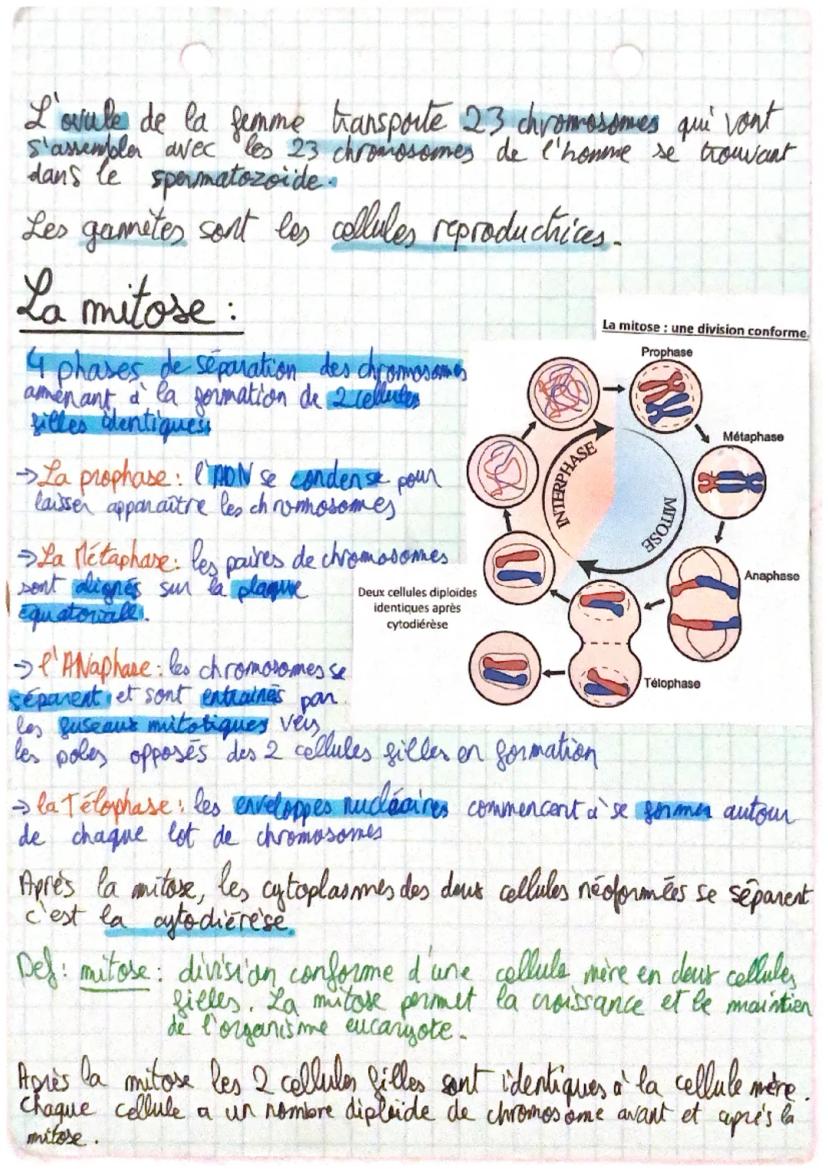 L'ovule de la femme transporte 23 chromosomes qui vont
s'assembler avec les 23 chromosomes de l'homme se trouvant
dans le spermatozoïde.
Les gamètes sont les cellules reproductrices.
La mitose :
4 phases de séparation des chromosomes
amenant à la formation de 2 cellules
filles identiques
→ La prophase : l'ADN se condense pour
laisser apparaître les chromosomes
→ La Métaphase : les paires de chromosomes
sont alignés sur la plaque
équatoriale.
→ l'ANaphase : les chromosomes se
séparent et sont entrainés par
les fuseaux mitotiques vers
les poles opposés des 2 cellules filles en formation
→ la Télophase : les enveloppes nucléaires commencent à se former autour
de chaque lot de chromosomes
La mitose : une division conforme.
Prophase
Métaphase
Anaphase
Télophase
INTERPHASE
MITOSE
Deux cellules diploïdes
identiques après
cytodiérèse
Après la mitose, les cytoplasmes des deux cellules néoformées se séparent
c'est la cytodiérèse
Def : mitose : division conforme d'une cellule mère en deux cellules
filles. La mitose permet la croissance et le maintien
de l'organisme eucaryote.
Après la mitose les 2 cellules filles sont identiques à la cellule mère.
Chaque cellule a un nombre diploïde de chromosome avant et après la
mitose.